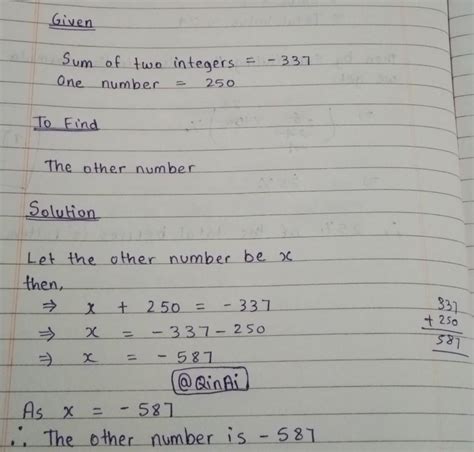 Given
Sum of two integers = - 337
One number = 250
To Find
The other number
Solution
Let the other number be x
then,
⇒ x + 250 = - 337
⇒ x = - 337 - 250
⇒ x = - 587
337
+ 250
587
@QinAi
As x = - 587
∴ The other number is - 587